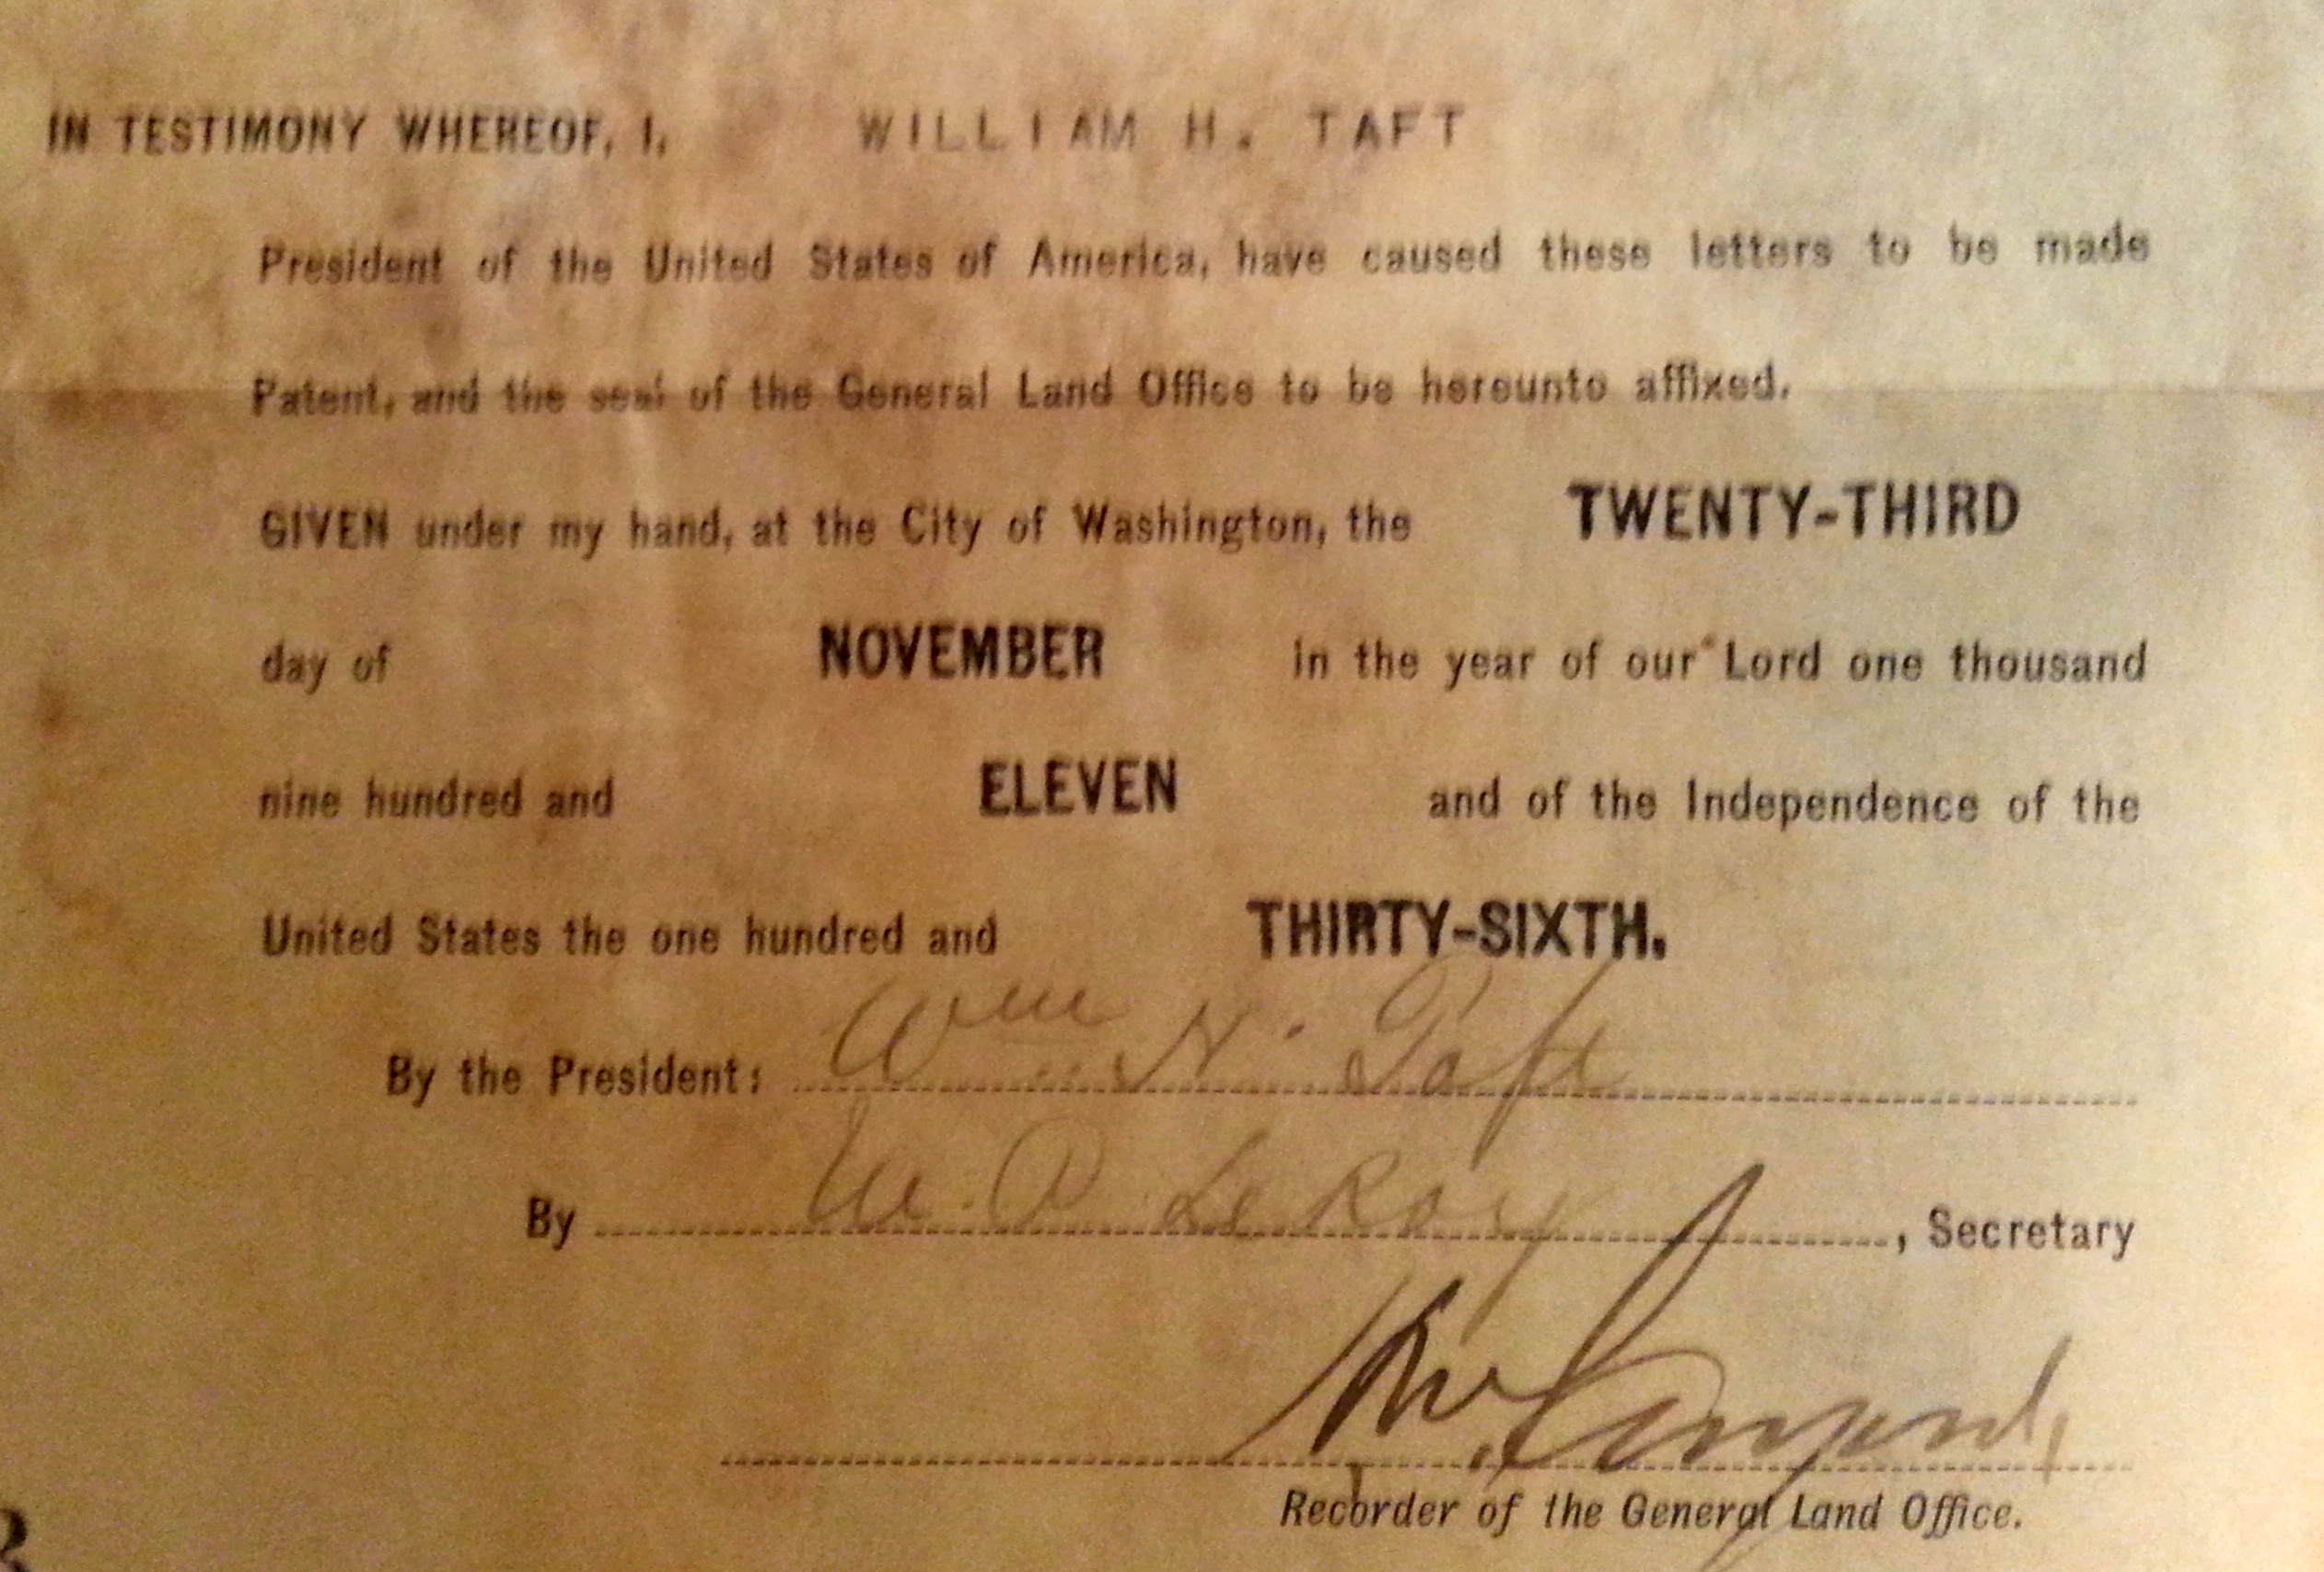 IN TESTIMONY WHEREOF, I, WILLIAM H. TAFT
President of the United States of America, have caused these letters to be made
Patent, and the seal of the General Land Office to be hereunto affixed.
GIVEN under my hand, at the City of Washington, the TWENTY-THIRD
day of NOVEMBER in the year of our Lord one thousand
nine hundred and ELEVEN and of the Independence of the
United States the one hundred and THIRTY-SIXTH.
By the President: Wm H. Taft
By M. P. LeRoy, Secretary
Recorder of the General Land Office.